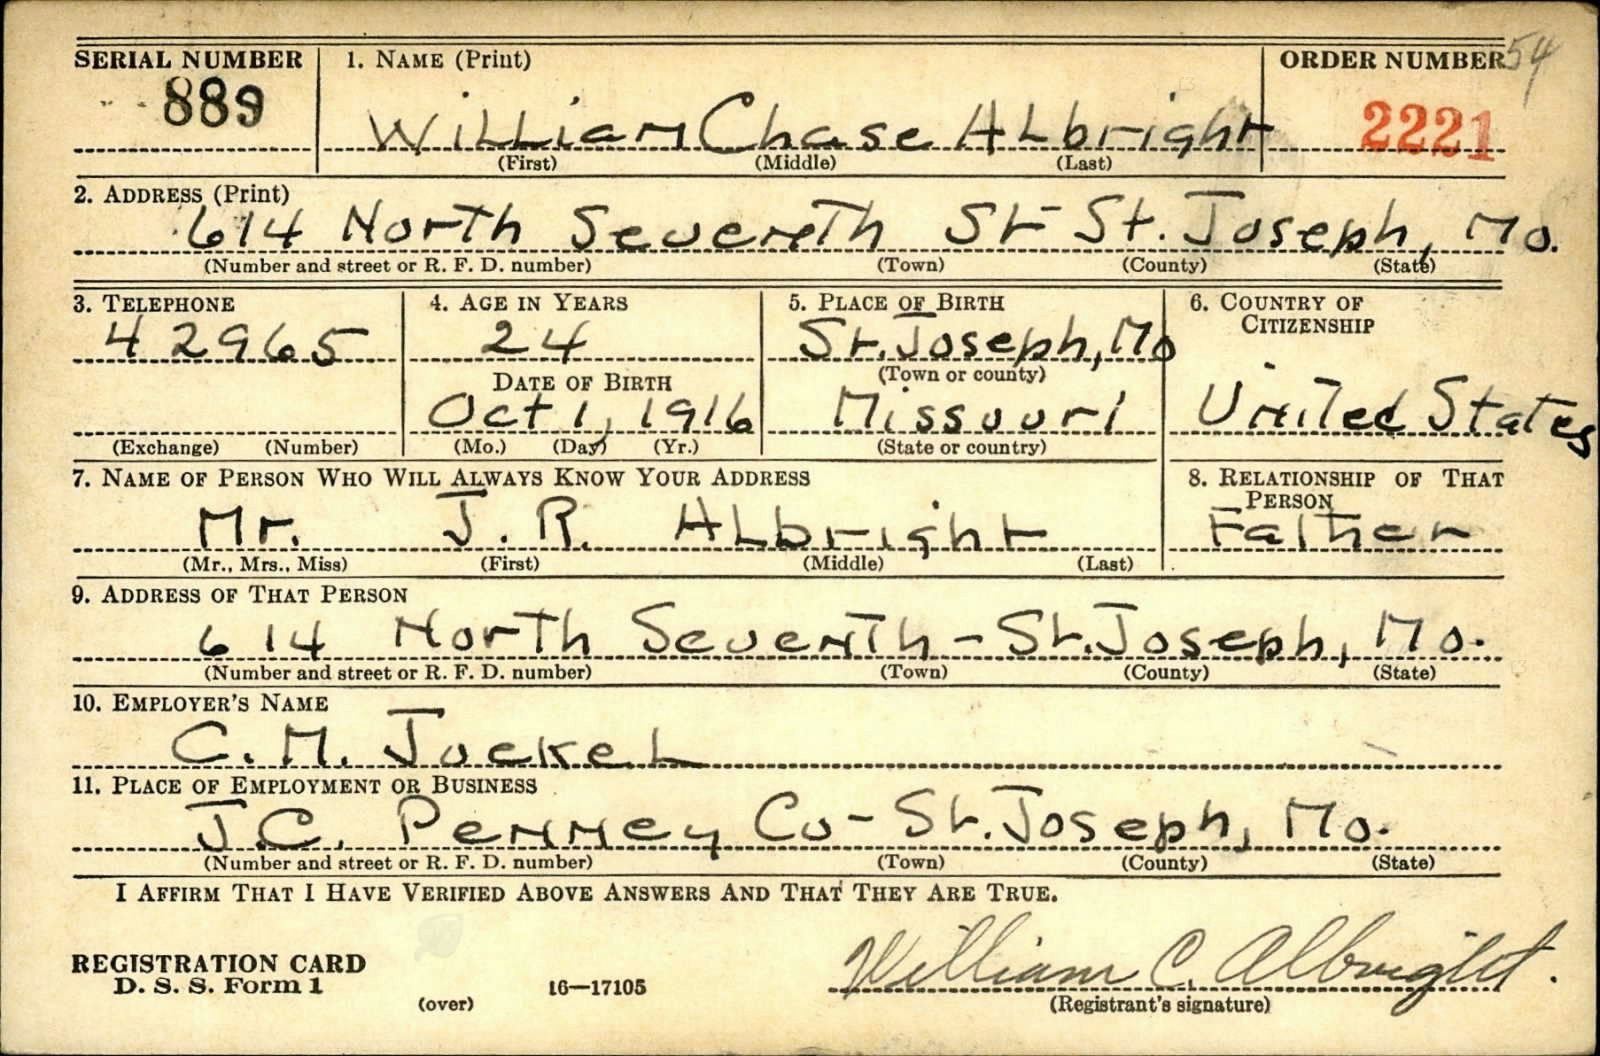 SERIAL NUMBER 1. NAME (Print) ORDER NUMBER 54
889 William Chase Albright 2221
(First) (Middle) (Last)
2. ADDRESS (Print)
614 North Seventh St- St. Joseph, Mo.
(Number and street or R. F. D. number) (Town) (County) (State)
3. TELEPHONE 4. AGE IN YEARS 5. PLACE OF BIRTH 6. COUNTRY OF CITIZENSHIP
42965 24 St. Joseph, Mo
(Town or county)
DATE OF BIRTH
Oct 1, 1916 Missouri United States
(Exchange) (Number) (Mo.) (Day) (Yr.) (State or country)
7. NAME OF PERSON WHO WILL ALWAYS KNOW YOUR ADDRESS 8. RELATIONSHIP OF THAT PERSON
Mr. J. R. Albright Father
(Mr., Mrs., Miss) (First) (Middle) (Last)
9. ADDRESS OF THAT PERSON
614 North Seventh - St. Joseph, Mo.
(Number and street or R. F. D. number) (Town) (County) (State)
10. EMPLOYER'S NAME
C. M. Jockel
11. PLACE OF EMPLOYMENT OR BUSINESS
J.C. Penney Co - St. Joseph, Mo.
(Number and street or R. F. D. number) (Town) (County) (State)
I AFFIRM THAT I HAVE VERIFIED ABOVE ANSWERS AND THAT THEY ARE TRUE.
REGISTRATION CARD
D. S. S. Form 1 (over) 16—17105 William C. Albright.
(Registrant's signature)